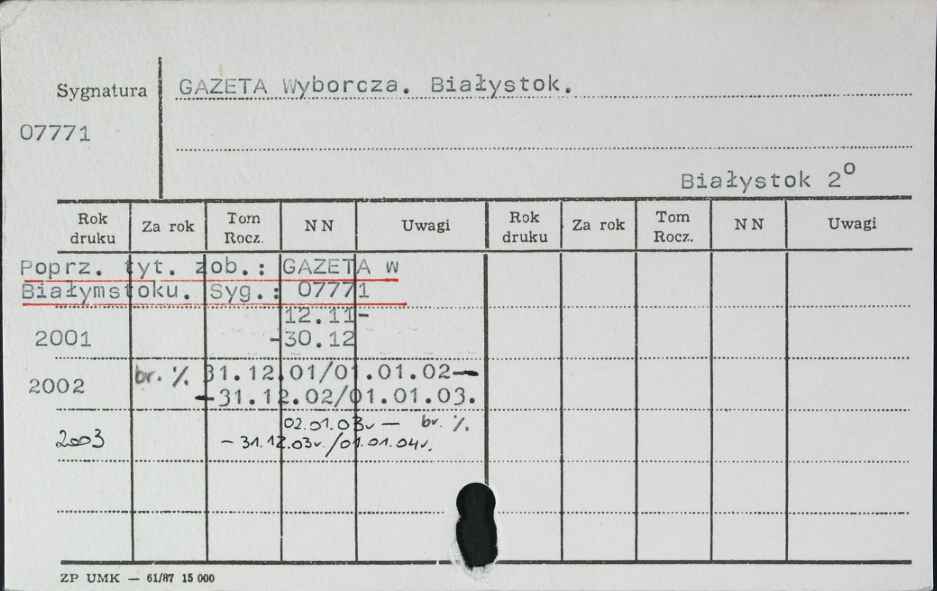 GAZETA Wyborcza. Białystok.
Sygnatura
07771
Białystok 2º
Rok druku Za rok Tom Rocz. N N Uwagi Rok druku Za rok Tom Rocz. N N Uwagi
Poprz. tyt. zob.: GAZETA w
Białymstoku. Syg.: 07771
12.11-
2001 -30.12
2002 br. ٪ 31.12.01/01.01.02-
-31.12.02/01.01.03.
02.01.03r — br. ٪
2003 - 31.12.03r./01.01.04r.
ZP UMK — 61/87 15 000